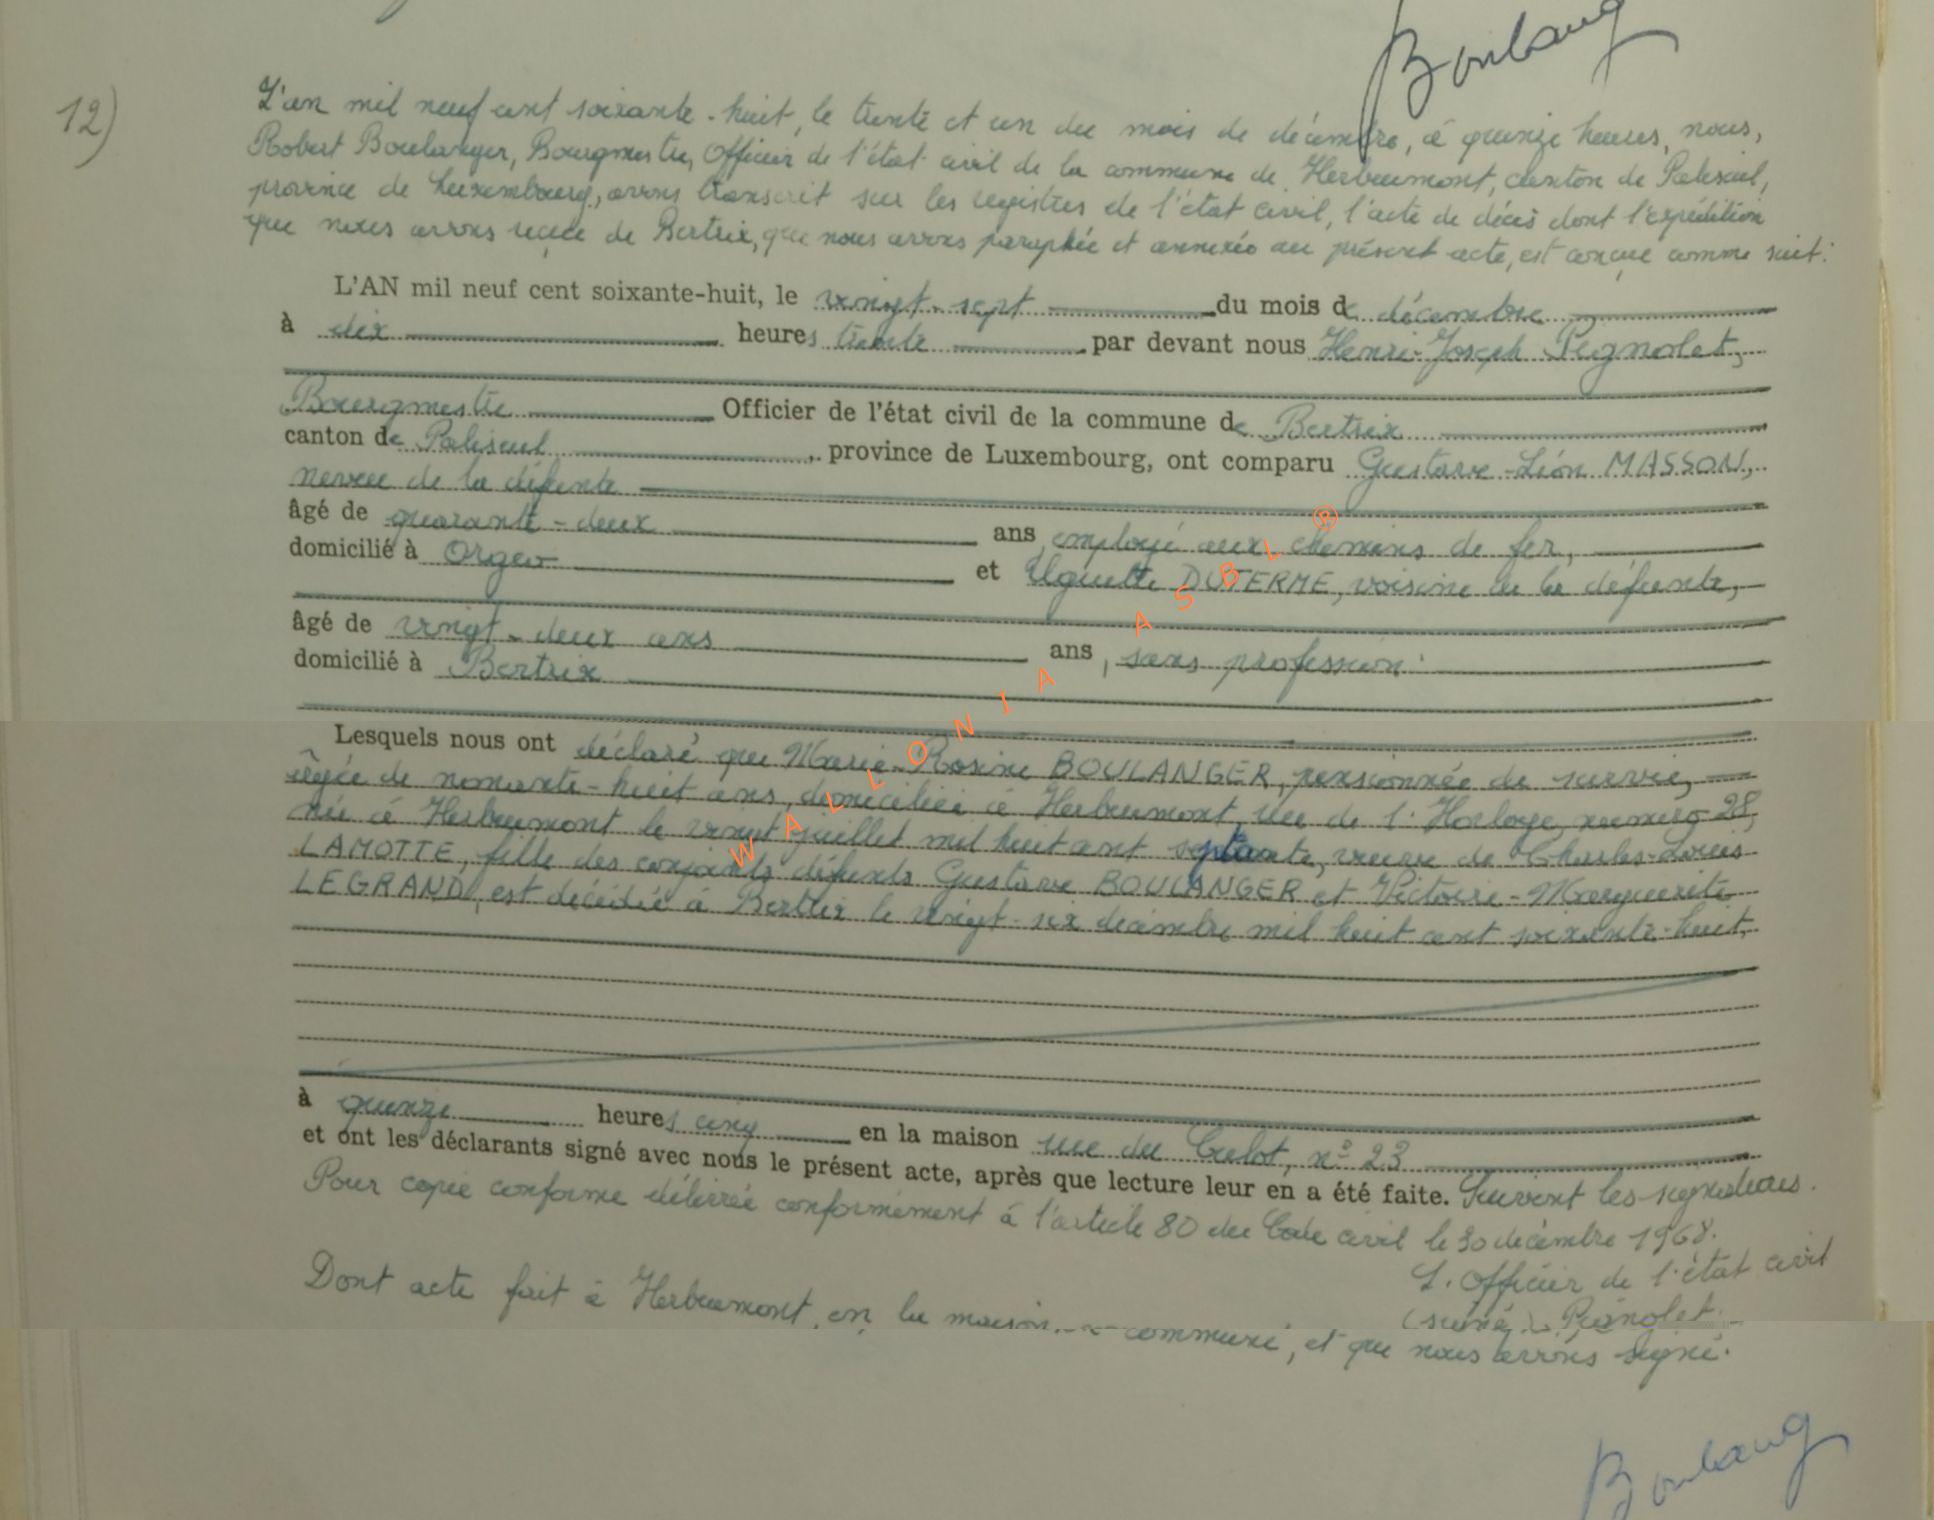 Boulang
12)
L'an mil neuf cent soixante-huit, le trente et un du mois de décembre, à quinze heures, nous,
Robert Boulanger, Bourgmestre, Officier de l'état civil de la commune de Herbeumont, canton de Paliseul,
province de Luxembourg, avons transcrit sur les registres de l'état civil, l'acte de décès dont l'expédition
que nous avons reçue de Bertrix, que nous avons paraphée et annexée au présent acte, est conçue comme suit:
L'AN mil neuf cent soixante-huit, le vingt-sept du mois de décembre
à dix heures trente par devant nous Henri-Joseph Pignolet,
Bourgmestre Officier de l'état civil de la commune de Bertrix
canton de Paliseul, province de Luxembourg, ont comparu Gustave-Léon MASSON,
neveu de la défunte
âgé de quarante-deux ans, employé aux chemins de fer,
domicilié à Orgeo et Uguette DUTERME, voisine de la défunte,
âgé de vingt-deux ans ans, sans profession.
domicilié à Bertrix
Lesquels nous ont déclaré que Marie-Rosine BOULANGER, pensionnée de survie,
âgée de nonante-huit ans, domiciliée à Herbeumont, rue de l'Horloge, numéro 28,
née à Herbeumont le vingt juillet mil huit cent septante, veuve de Charles-Louis
LAMOTTE, fille des conjoints défunts Gustave BOULANGER et Victoire-Marguerite
LEGRAND, est décédée à Bertrix le vingt-six décembre mil huit cent soixante-huit,
à quinze heures cinq en la maison rue du Culot, n° 23
et ont les déclarants signé avec nous le présent acte, après que lecture leur en a été faite. Suivent les signatures.
Pour copie conforme délivrée conformément à l'article 80 du Code civil le 30 décembre 1968.
L'Officier de l'état civil
(signé) Pignolet.
Dont acte fait à Herbeumont, en la maison commune, et que nous avons signé.
Boulang
WALLONIA ASBL ®